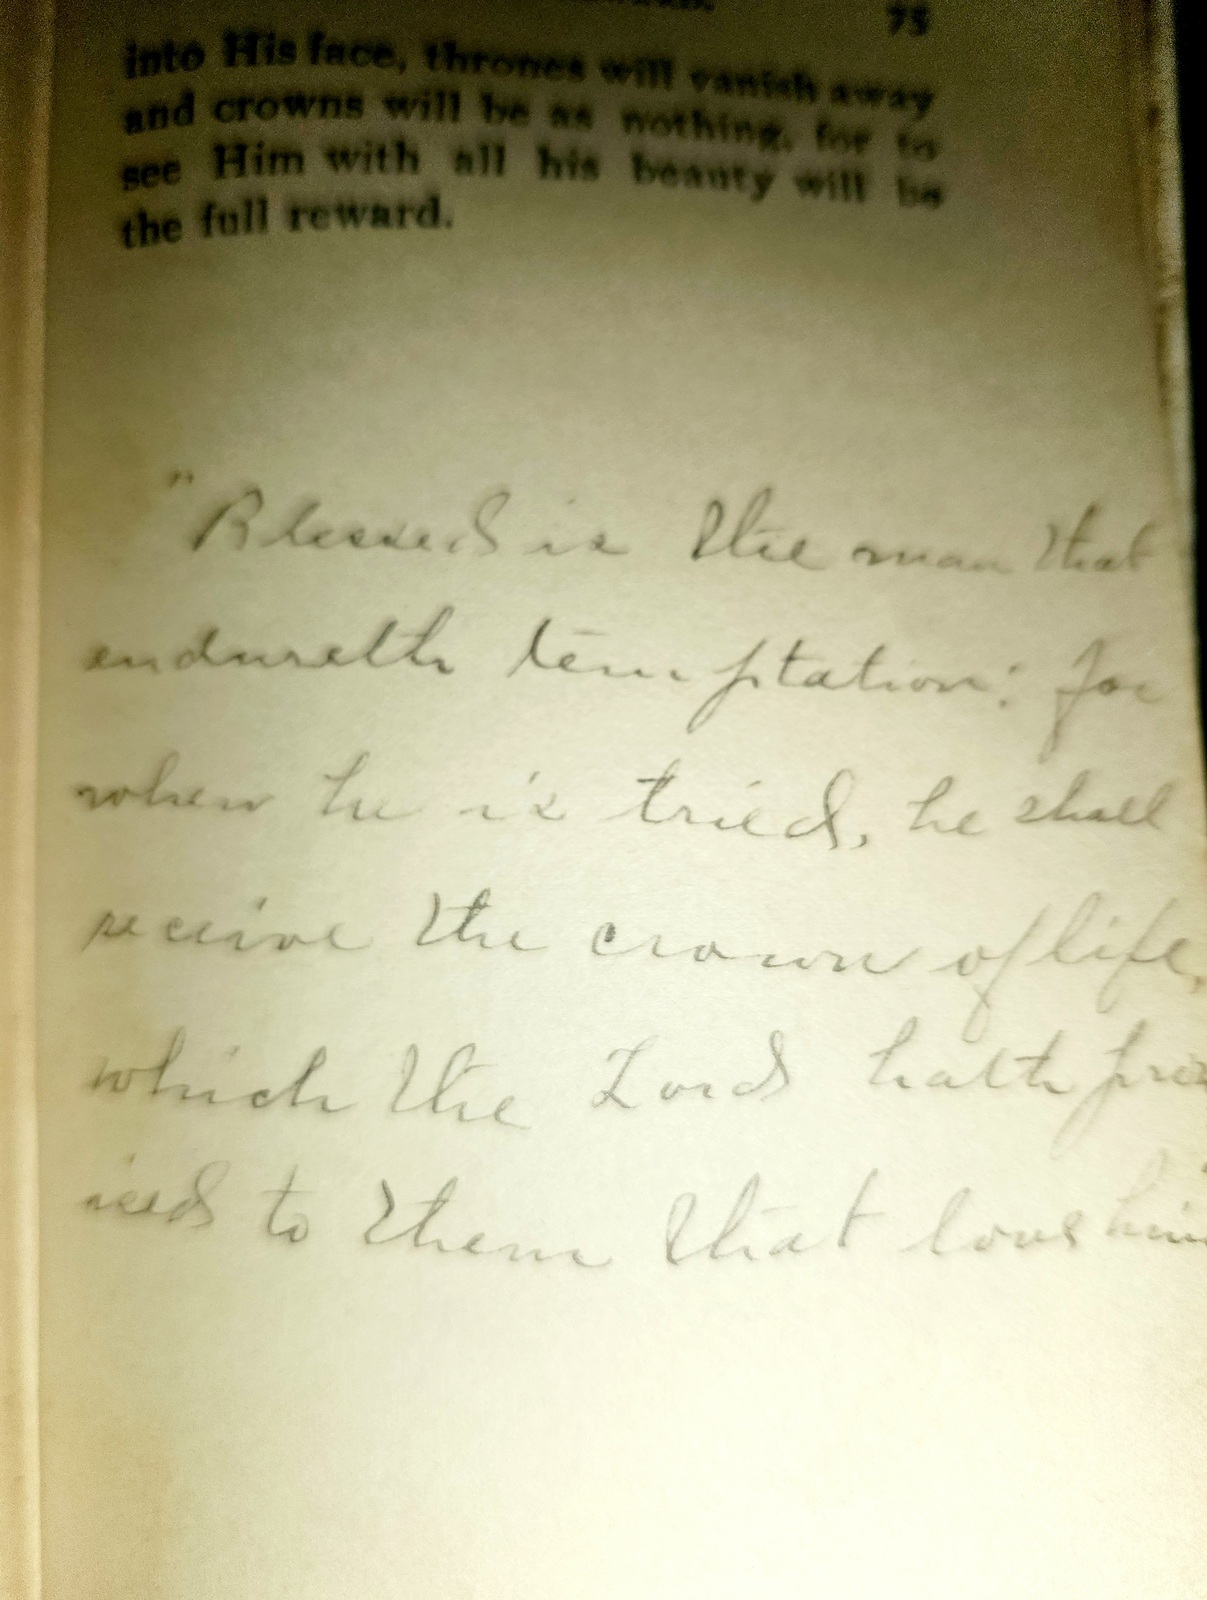 75
into His face, thrones will vanish away
and crowns will be as nothing, for to
see Him with all his beauty will be
the full reward.
"Blessed is the man that
endureth temptation: for
when he is tried, he shall
receive the crown of life,
which the Lord hath prom
ised to them that love him